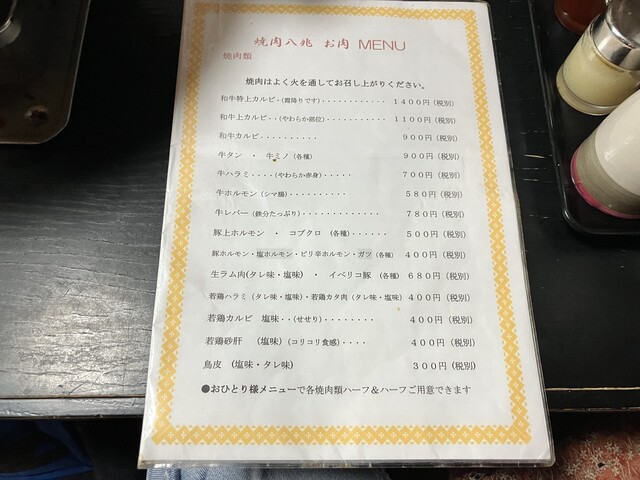 焼肉八兆 お肉 MENU
焼肉類
焼肉はよく火を通してお召し上がりください。
和牛特上カルビ・(霜降りです)・・・・・・・・・・・・ 1400円(税別)
和牛上カルビ・・(やわらか部位)・・・・・・・・・・・ 1100円(税別)
和牛カルビ・・・・・・・・・・ 900円(税別)
牛タン ・ 牛ミノ(各種) 900円(税別)
牛ハラミ・・・・(やわらか赤身)・・・・・ 700円(税別)
牛ホルモン(シマ腸)・・・・・・・・・・ 580円(税別)
牛レバー(鉄分たっぷり)・・・・・・・・・・・・・ 780円(税別)
豚上ホルモン ・ コブクロ (各種)・・・・・・ 500円(税別)
豚ホルモン・塩ホルモン・ピリ辛ホルモン・ガツ(各種) 400円(税別)
生ラム肉(タレ味・塩味) ・ イベリコ豚 (各種) 680円(税別)
若鶏ハラミ(タレ味・塩味)・若鶏カタ肉(タレ味・塩味) 400円(税別)
若鶏カルビ 塩味・・(せせり)・・・・・・・・ 400円(税別)
若鶏砂肝 (塩味)(コリコリ食感)・・・・ 400円(税別)
鳥皮 (塩味・タレ味) 300円(税別)
●おひとり様メニューで各焼肉類ハーフ&ハーフご用意できます